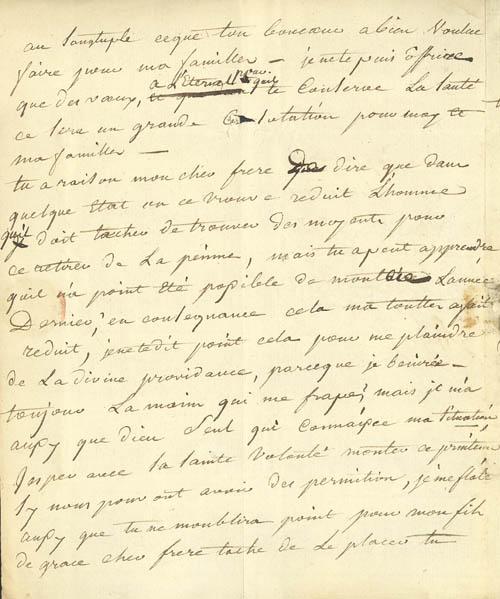 au Sangtuple ceque ton bon cœur a bien Voulue
faire pour ma famillee — je ne te puis offrire
que des vœux, a L'Eternel pour quil te Conserve La Santé
ce Sera un grande Consolation pour moy et
ma famillee —
tu a raison mon cher frere de dire que dans
quelque Etat on ce trouve reduit L'homme
quil doit tacher de trouver des moyents pour
ce retirer de La peinne, mais tu a peut apprendre
quil n'a point Eté posible de monter L'année
Dernier, en consequance cela ma toutter afait
reduit, je ne te dit point cela pour me plaindre
de La divine providance, parceque je beinirée —
toujour La main qui me frape, mais je n'a
aussy que dieu Seul qui connaisse ma Situation,
J'esper avec Sa Sainte Volonté monter ce printems
Sy nous pour ont avoir des permition, je me flate
aussy que tu ne moublira point pour mon fils
de grace cher frere tache de Le placer tu